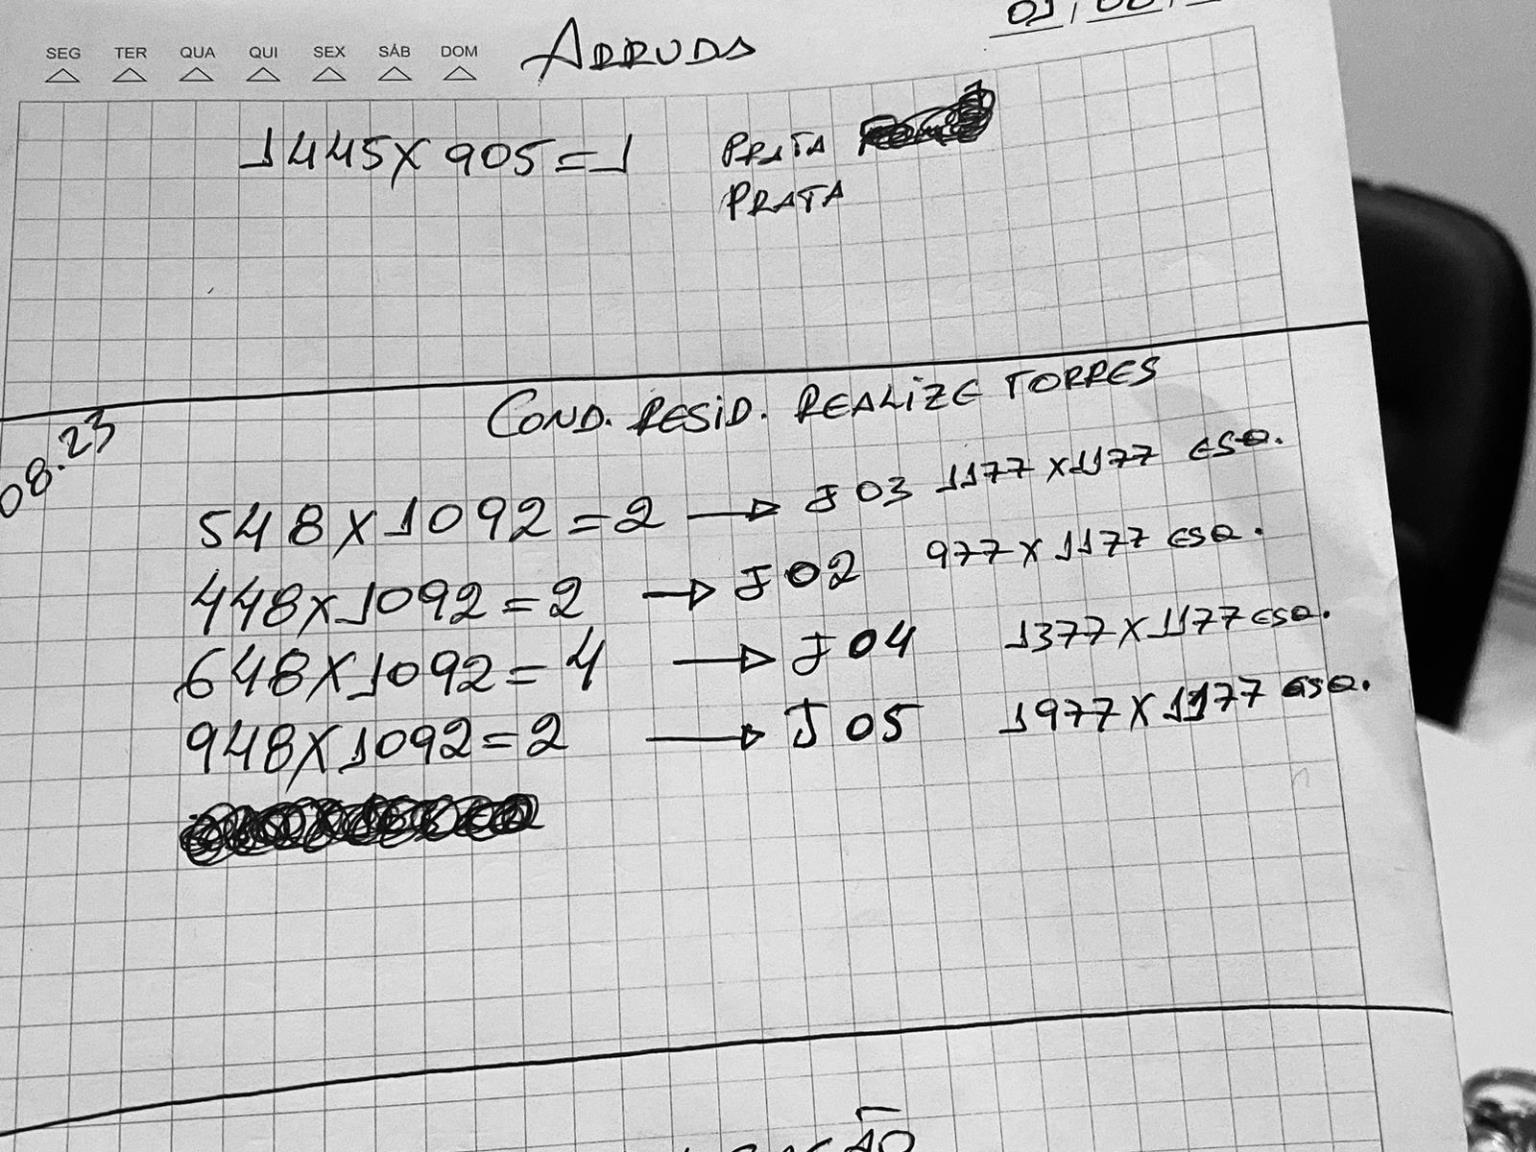 SEG TER QUA QUI SEX SÁB DOM
ARRUDA
1445X905=1 PRATA
PRATA
COND. RESID. REALIZE TORRES
08.23
548X1092=2 → J03 1177X1177 ESQ.
448X1092=2 → J02 977X1177 ESQ.
648X1092=4 → J04 1377X1177 ESQ.
948X1092=2 → J05 1977X1177 ESQ.